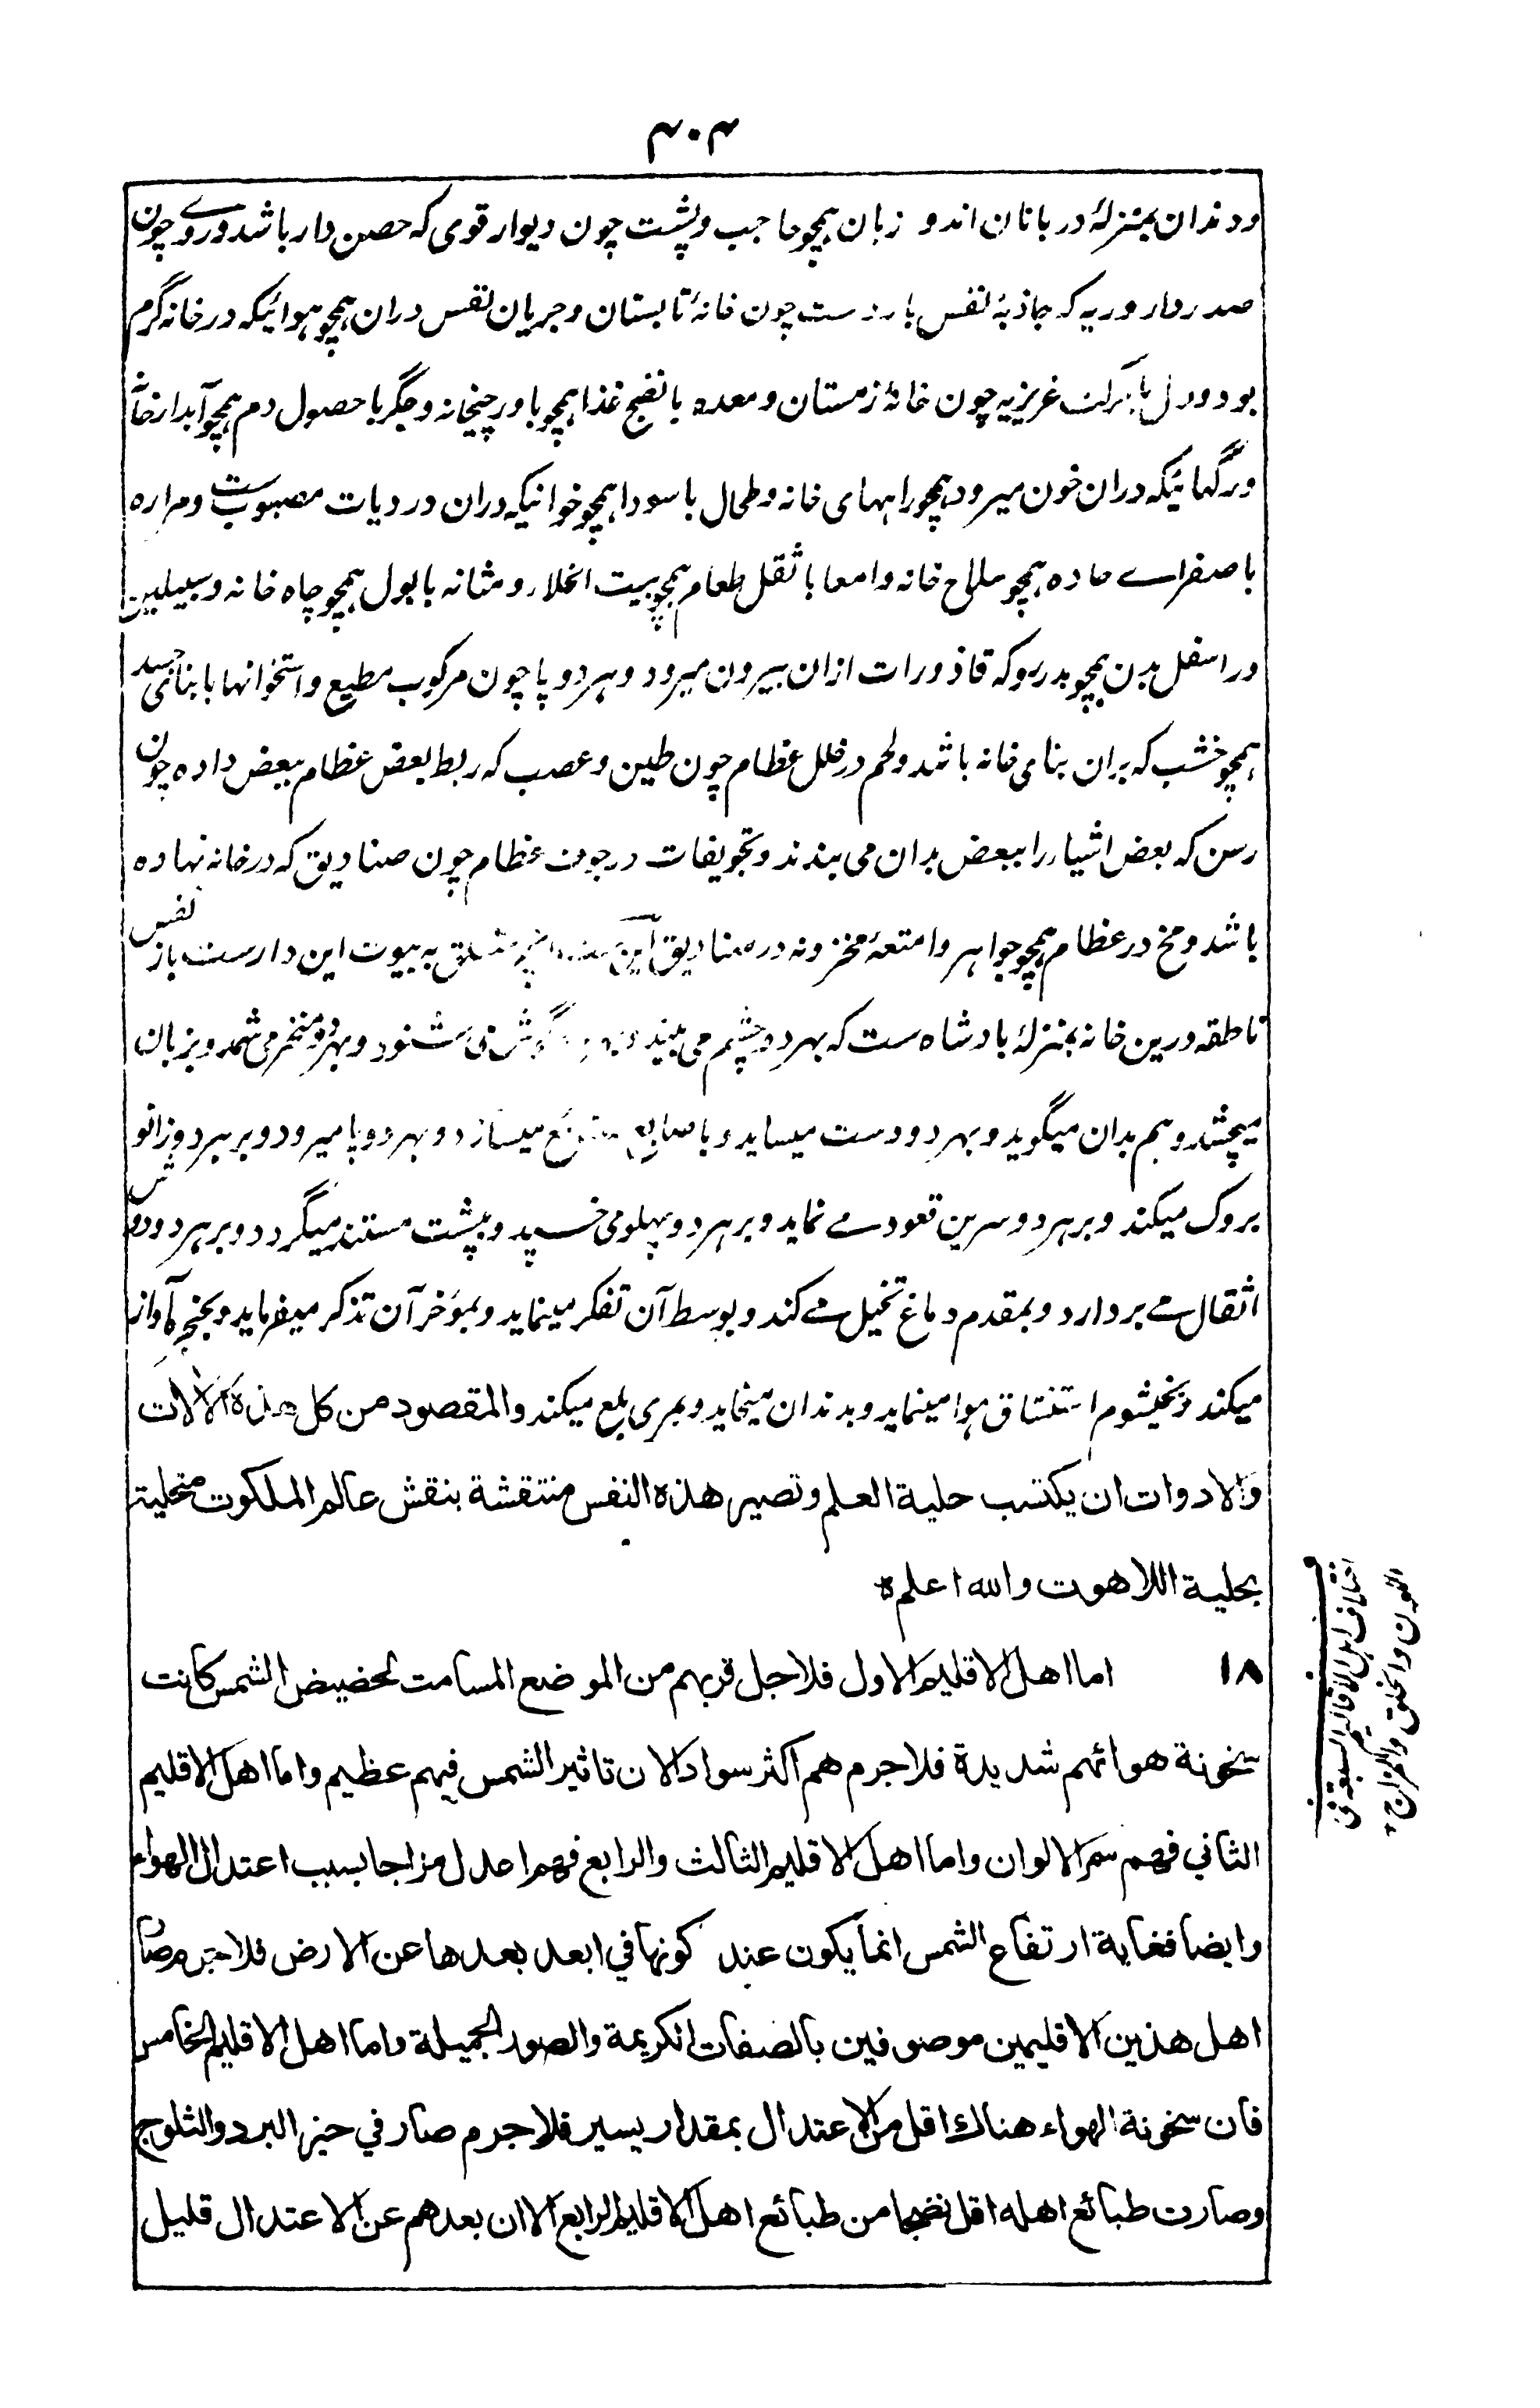 ۳۰۳
ودندان بمنزلهٔ دربانان اندو زبان همچو حاجب وپشت چون دیوار قوی که حصن دار باشد وروے چون
صدر دار وریه که جاذبهٔ نفس بارد ست چون خانهٔ تابستان وجریان نفس دران همچو هوائیکه در خانه گرم
بود ودل با غریزیه چون خانهٔ زمستان ومعده با نضج غذا همچو باورچیخانه وجگر با حصول دم همچو آبدار خانه
ورگهائیکه دران خون میرود همچو راههای خانه وطحال با سودا همچو خوانیکه دران دردیات مصبوب ست ومراره
با صفراے حاده همچو سلاح خانه وامعا با ثقل طعام همچو بیت الخلاء ومثانه با بول همچو چاه خانه وسبیلین
در اسفل بدن همچو بدررو که قاذورات ازان بیرون میرود وهر دو پا چون مرکوب مطیع واستخوانها با بنائی جسد
همچو خشب که بران بنای خانه باشد ولحم در خلل عظام چون طین وعصب که ربط بعض عظام ببعض داده چون
رسن که بعض اشیاء را ببعض بدان می بندند وتجویفات در جوف عظام چون صنادیق که در خانه نهاده
باشد ومخ در عظام همچو جواهر وامتعهٔ مخزونه در صنادیق این متعلق به بیوت این دار ست باز نفس
ناطقه درین خانه بمنزلهٔ بادشاه ست که بهر دو چشم می بیند گوش می شنود وبهر دو منخر می شمد وبزبان
میچشد وهم بدان میگوید وبهر دو دست میساید وباصابع میسازد وبهر دو پا میرود وبر هر دو زانو
بروک میکند وبر هر دو سرین قعود مے نماید وبر هر دو پهلو می خسپد وبپشت مستند میگردد وبر هر دو دوش
اثقال مے بردارد وبمقدم دماغ تخیل مے کند وبوسط آن تفکر مینماید وبموخر آن تذکر میفرماید وبحنجره آواز
میکند وبخیشوم استنشاق هوا مینماید وبدندان میخاید وبمری بلع میکند والمقصود من كل هذه الالات
والادوات ان يكتسب حلية العلم وتصير هذه النفس منتقشة بنقش عالم الملكوت متحلية
بحلية اللاهوت والله اعلم
۱۸ اما اهل الاقليم الاول فلاجل قربهم من الموضع المسامت لحضيض الشمس كانت
سخونة هوائهم شديدة فلاجرم هم اكثر سوادا لان تاثير الشمس فيهم عظيم واما اهل الاقليم
الثاني فهم سمر الالوان واما اهل الاقليم الثالث والرابع فهم اعدل مزاجا بسبب اعتدال الهواء
وايضا فغاية ارتفاع الشمس انما يكون عند كونها في ابعد بعدها عن الارض فلاجرم صار
اهل هذين الاقليمين موصوفين بالصفات الكريمة والصور الجميلة واما اهل الاقليم الخامس
فان سخونة الهواء هناك اقل من الاعتدال بمقدار يسير فلاجرم صار في حيز البرد والثلوج
وصارت طبائع اهله اقل نضجا من طبائع اهل الاقليم الرابع الا ان بعدهم عن الاعتدال قليل
اختلاف اهل الاقاليم السبعة في
اللون والخلق والمزاج